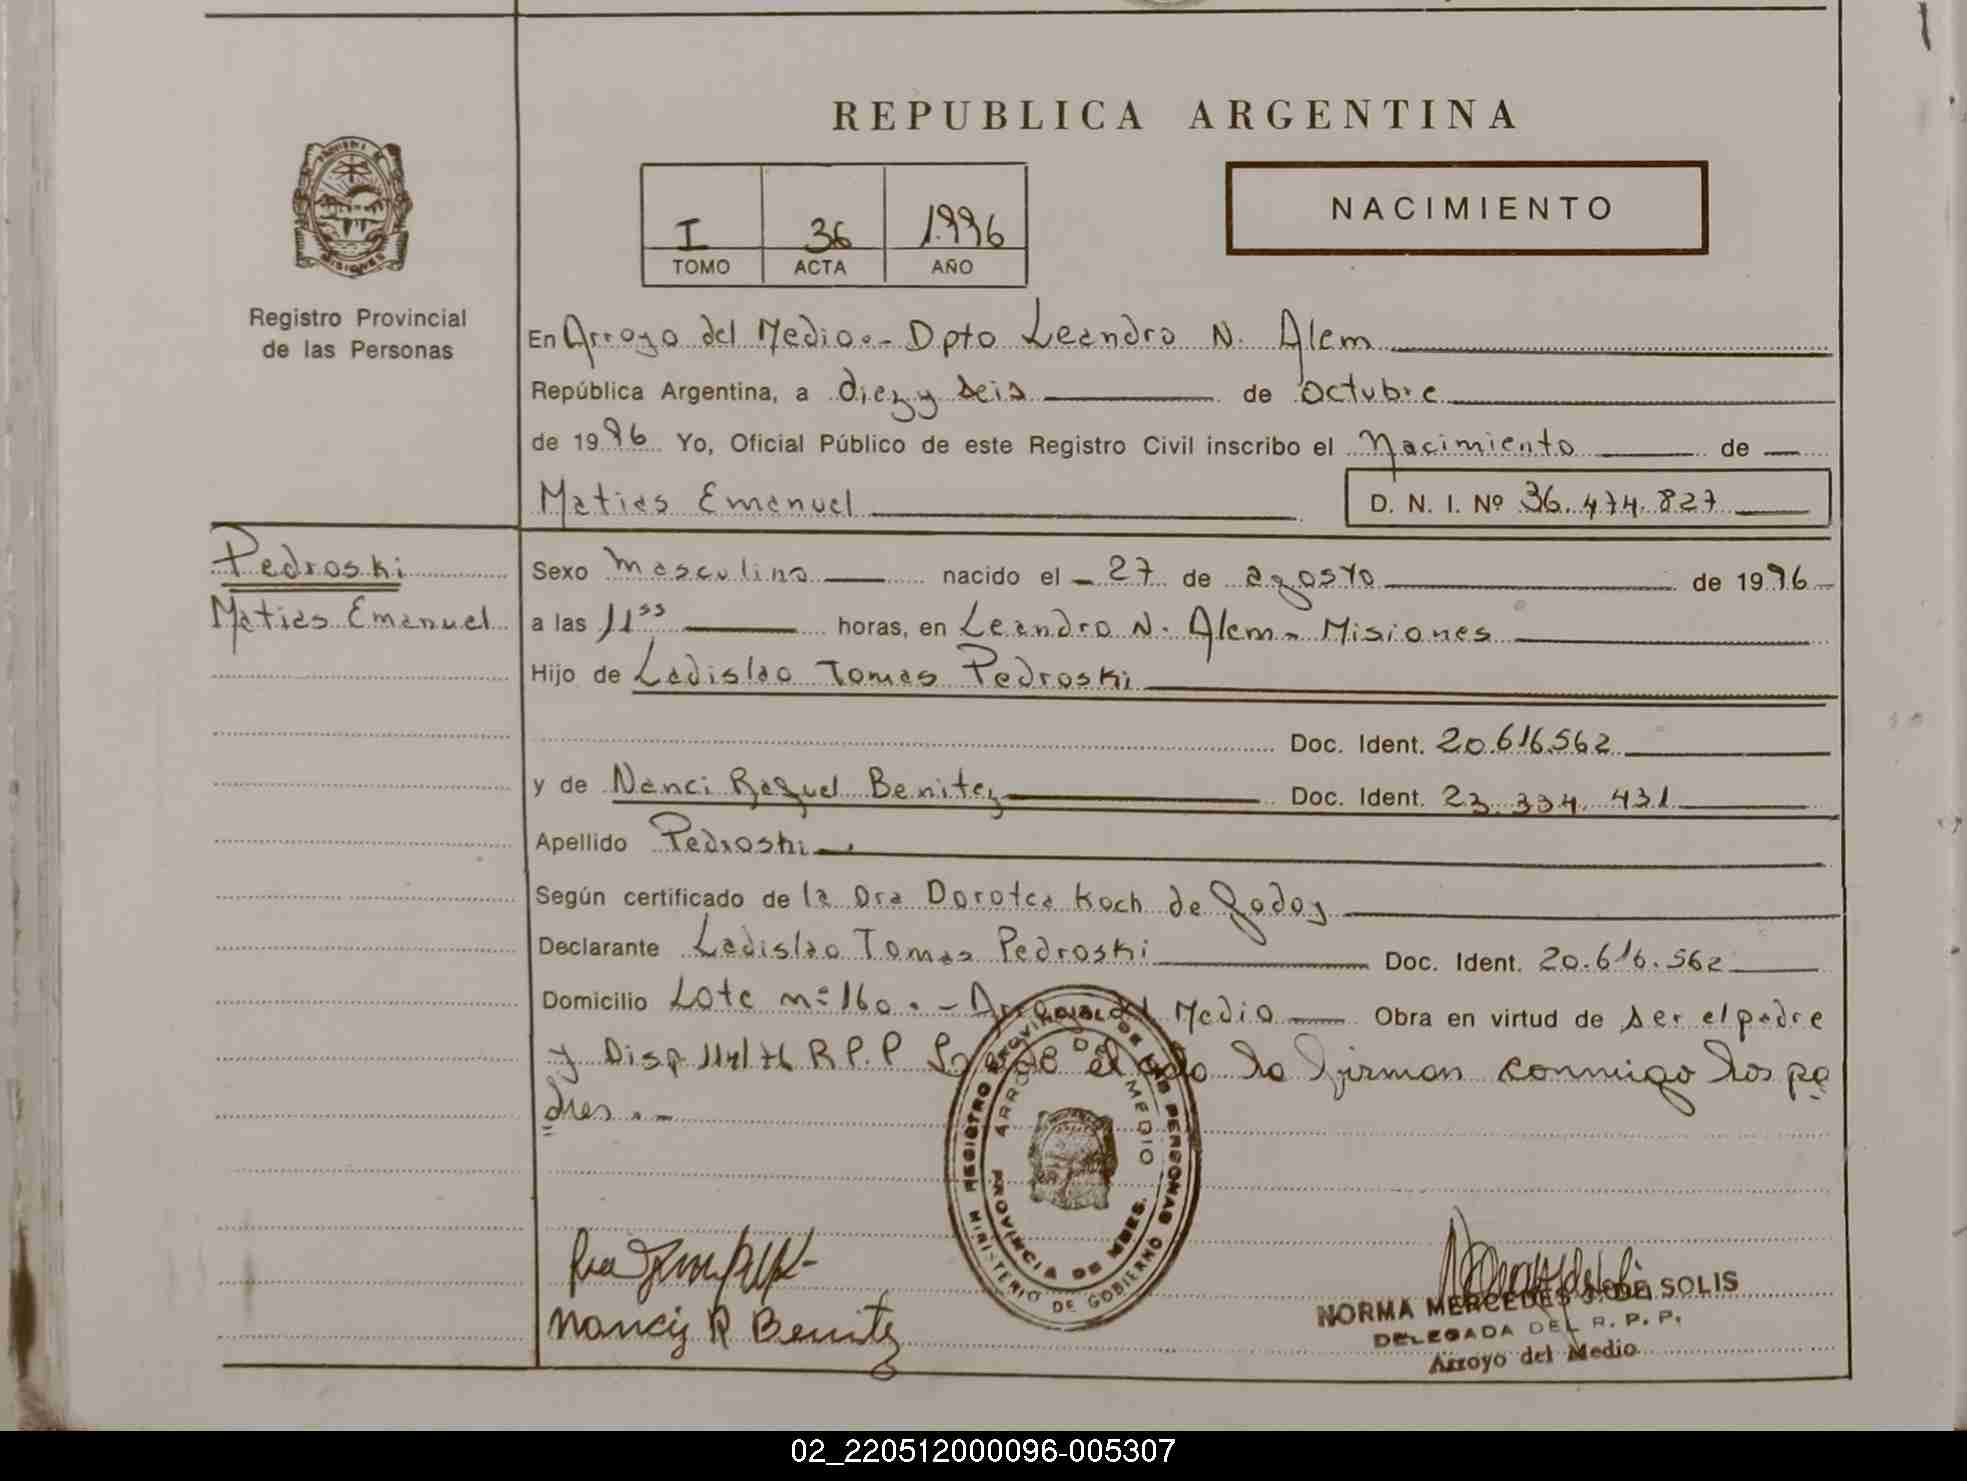 REPUBLICA ARGENTINA
NACIMIENTO
I 36 1.996
TOMO ACTA AÑO
Registro Provincial
de las Personas
En Arroyo del Medio.- Dpto Leandro N. Alem
República Argentina, a diez y seis de octubre
de 1996 Yo, Oficial Público de este Registro Civil inscribo el Nacimiento de
Matias Emanuel D. N. I. Nº 36.474.827
Pedroski
Matias Emanuel
Sexo masculino nacido el 27 de agosto de 1996
a las 11 horas, en Leandro N. Alem - Misiones
Hijo de Ladislao Tomas Pedroski
Doc. Ident. 20.616.562
y de Nanci Raquel Benitez Doc. Ident. 23.334.431
Apellido Pedroski
Según certificado de la Dra Dorotea Koch de Godoy
Declarante Ladislao Tomas Pedroski Doc. Ident. 20.616.562
Domicilio Lote nº 160.- Arroyo del Medio Obra en virtud de ser el padre
y Disp R.P.P el acto la firman conmigo los pa
dres.-
REGISTRO PROVINCIAL DE LAS PERSONAS
MINISTERIO DE GOBIERNO
ARROYO DEL MEDIO
PROVINCIA DE MNES.
Nancy R Benitez
NORMA MERCEDES J. DE SOLIS
DELEGADA DEL R. P. P.
Arroyo del Medio
02_220512000096-005307